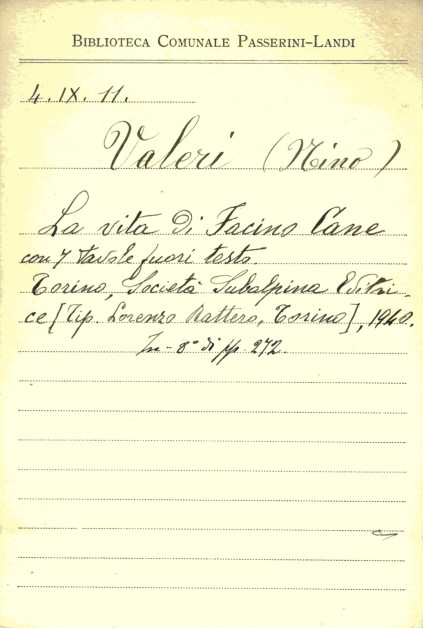 BIBLIOTECA COMUNALE PASSERINI-LANDI
4. IX. 11.
Valeri (Nino)
La vita di Facino Cane
con 7 tavole fuori testo.
Torino, Società Subalpina Editri-
ce [Tip. Lorenzo Rattero, Torino], 1940.
In-8° di pp. 272.